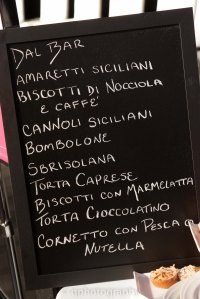 DAL BAR
AMARETTI SICILIANI
BISCOTTI DI NOCCIOLA
E CAFFE'
CANNOLI SICILIANI
BOMBOLONE
SBRISOLANA
TORTA CAPRESE
BISCOTTI CON MARMELATTA
TORTA CIOCCOLATINO
CORNETTO CON PESCA O
NUTELLA